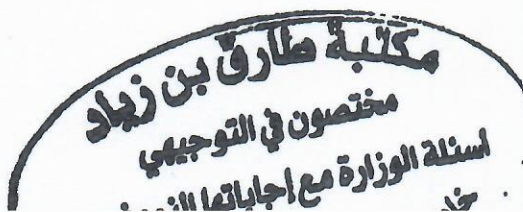 مكتبة طارق بن زياد
مختصون في التوجيهي
اسئلة الوزارة مع اجاباتها